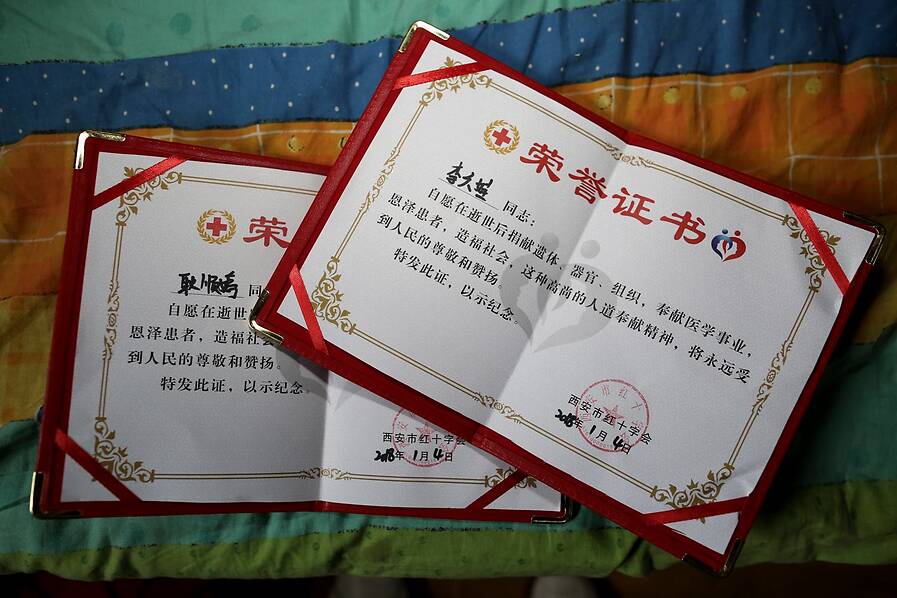 荣誉证书
同志：
自愿在逝世后捐献遗体、器官、组织，奉献医学事业，
恩泽患者，造福社会，这种高尚的人道奉献精神，将永远受
到人民的尊敬和赞扬。
特发此证，以示纪念。
西安市红十字会
2018年1月4日
荣
耿顺 同
自愿在逝世
恩泽患者，造福社会
到人民的尊敬和赞扬。
特发此证，以示纪念。
西安市红十字会
2018年1月4日